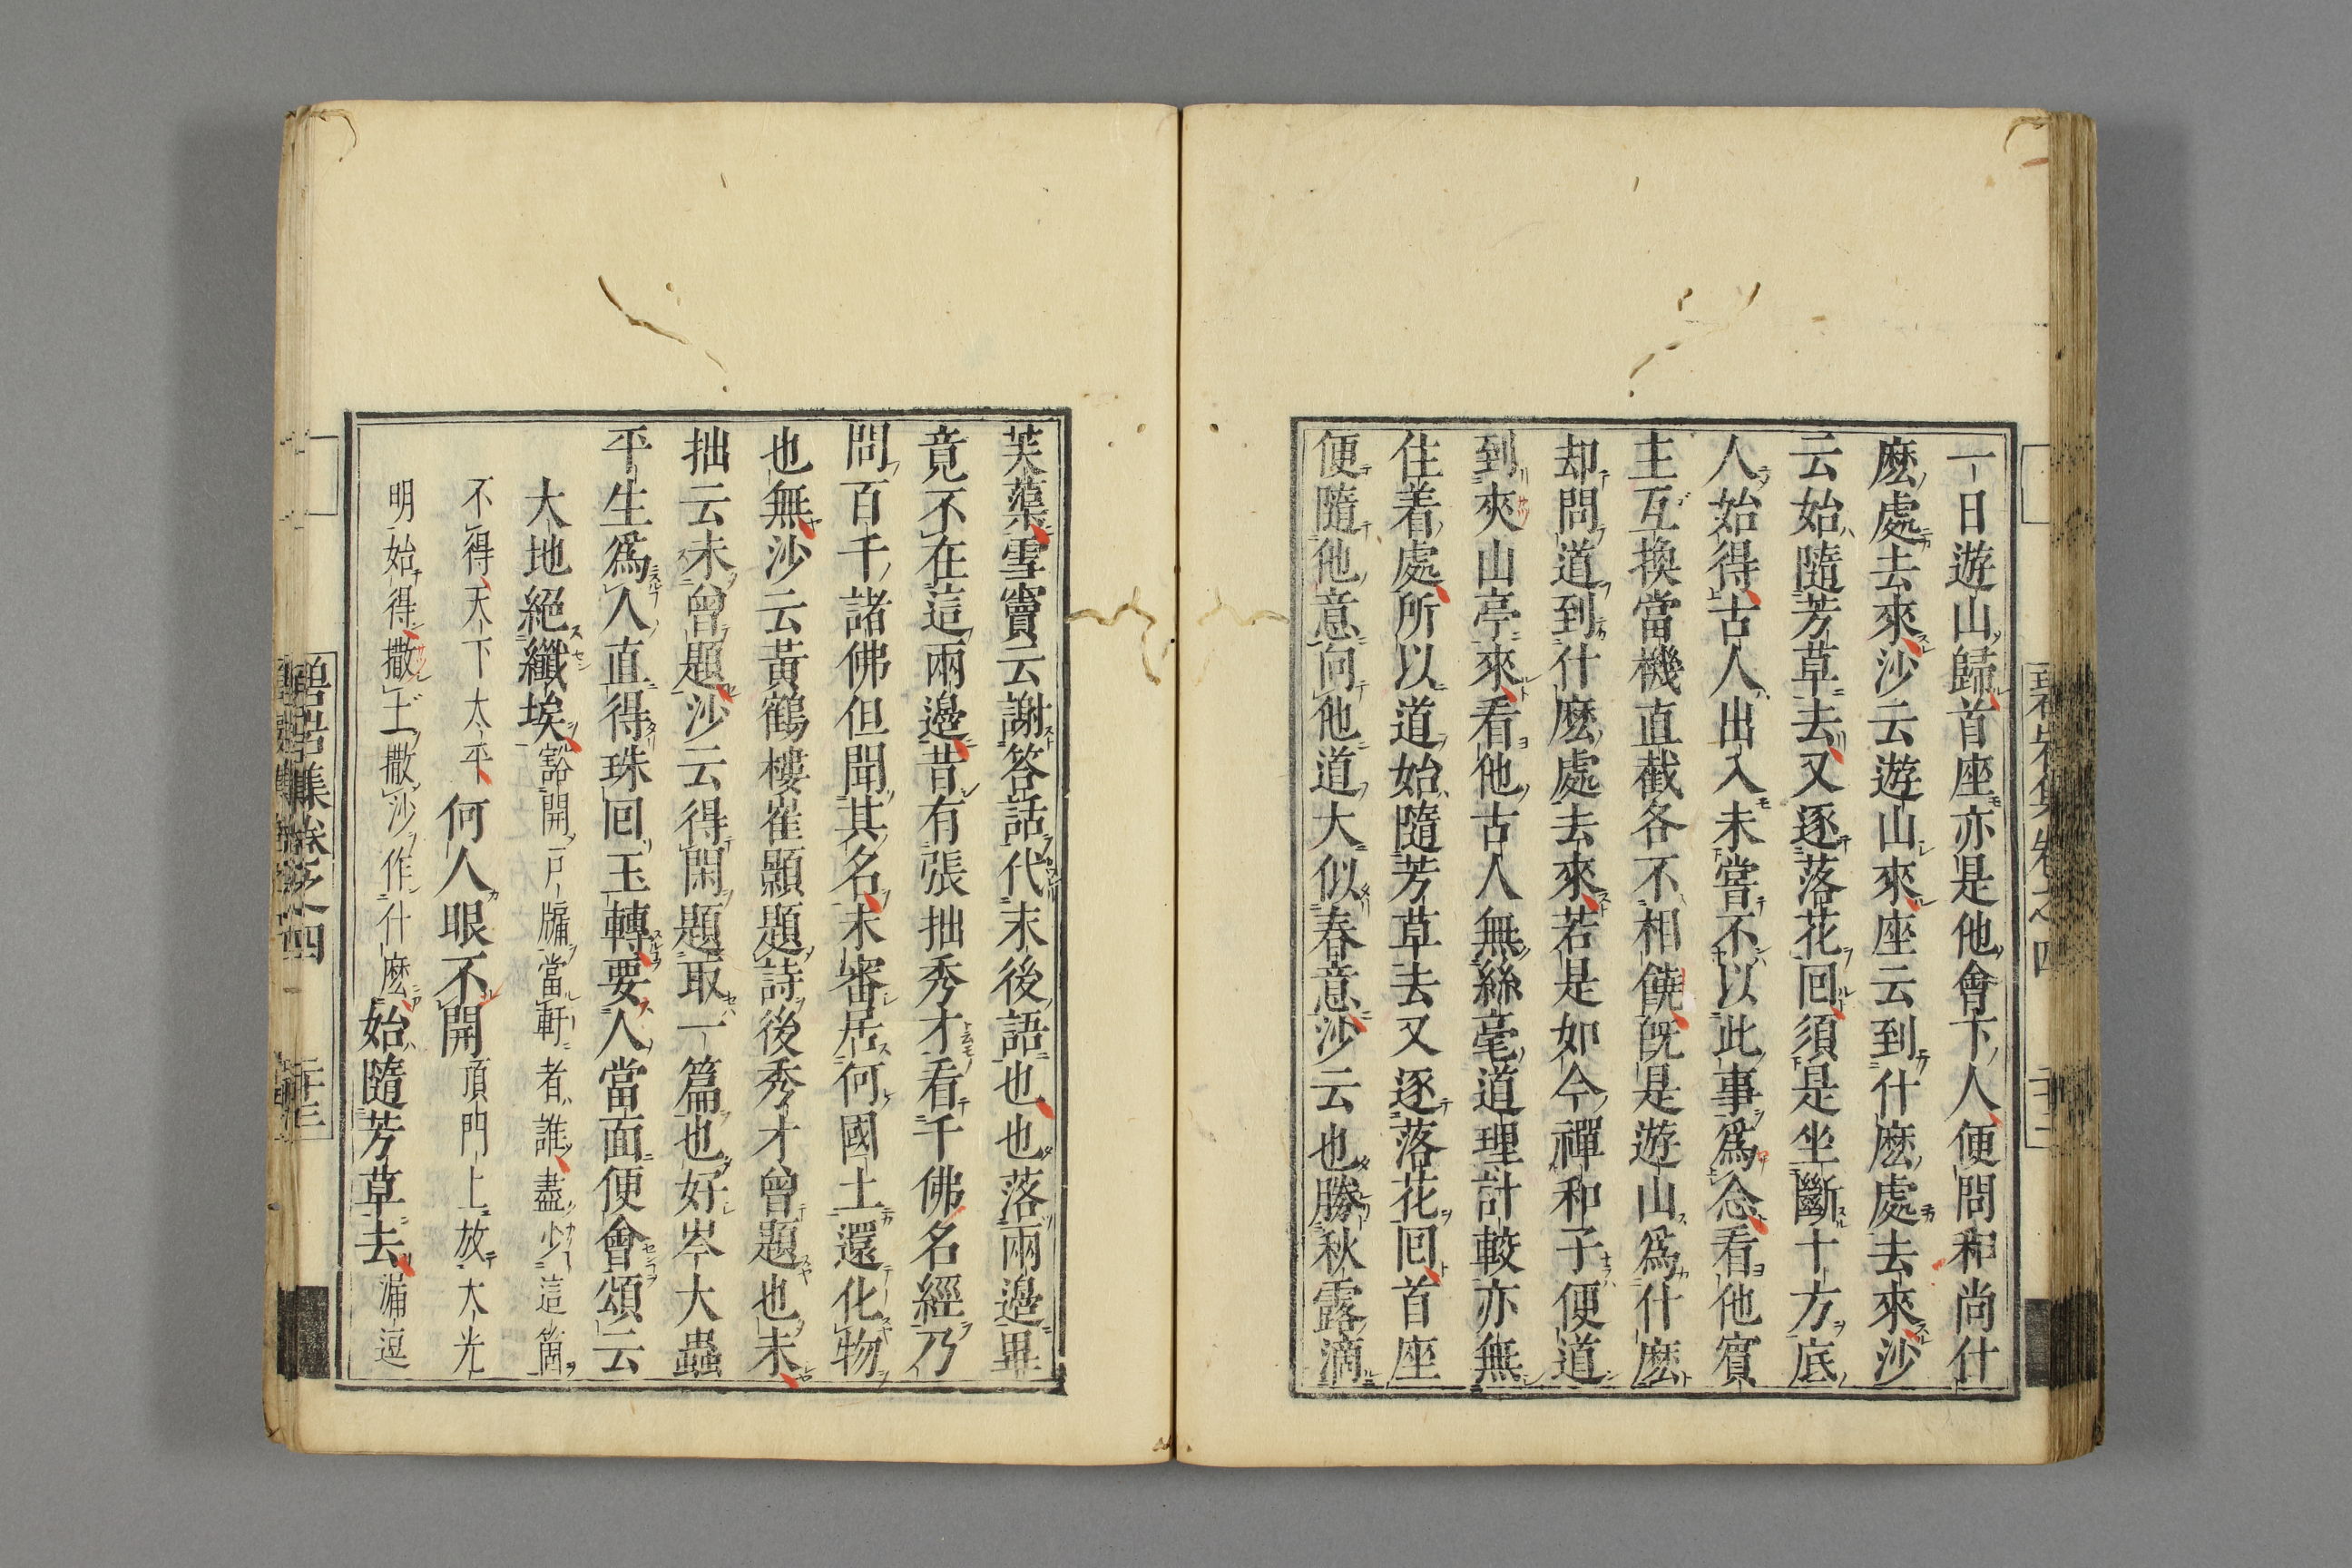 一日遊山歸首座亦是他會下人便問和尚什
麽處去來沙云遊山來座云到什麽處去來沙
云始隨芳草去又逐落花回須是坐斷十方底
人始得古人出入未嘗不以此事爲念看他賓
主互換當機直截各不相饒旣是遊山爲什麽
却問道到什麽處去來若是如今禪和子便道
到夾山亭來看他古人無絲毫道理計較亦無
住着處所以道始隨芳草去又逐落花回首座
便隨他意向他道大似春意沙云也勝秋露滴
芙蕖雪竇云謝答話代末後語也也落兩邊畢
竟不在這兩邊昔有張拙秀才看千佛名經乃
問百千諸佛但聞其名未審居何國土還化物
也無沙云黃鶴樓崔顥題詩後秀才曾題也未
拙云未曾題沙云得閑題取一篇也好岑大蟲
平生爲人直得珠回玉轉要人當面便會頌云
大地絕纖埃豁開戶牖當軒者誰盡少這箇
不得天下太平何人眼不開頂門上放大光
明始得撒土撒沙作什麽始隨芳草去漏逗
碧岩集卷之四